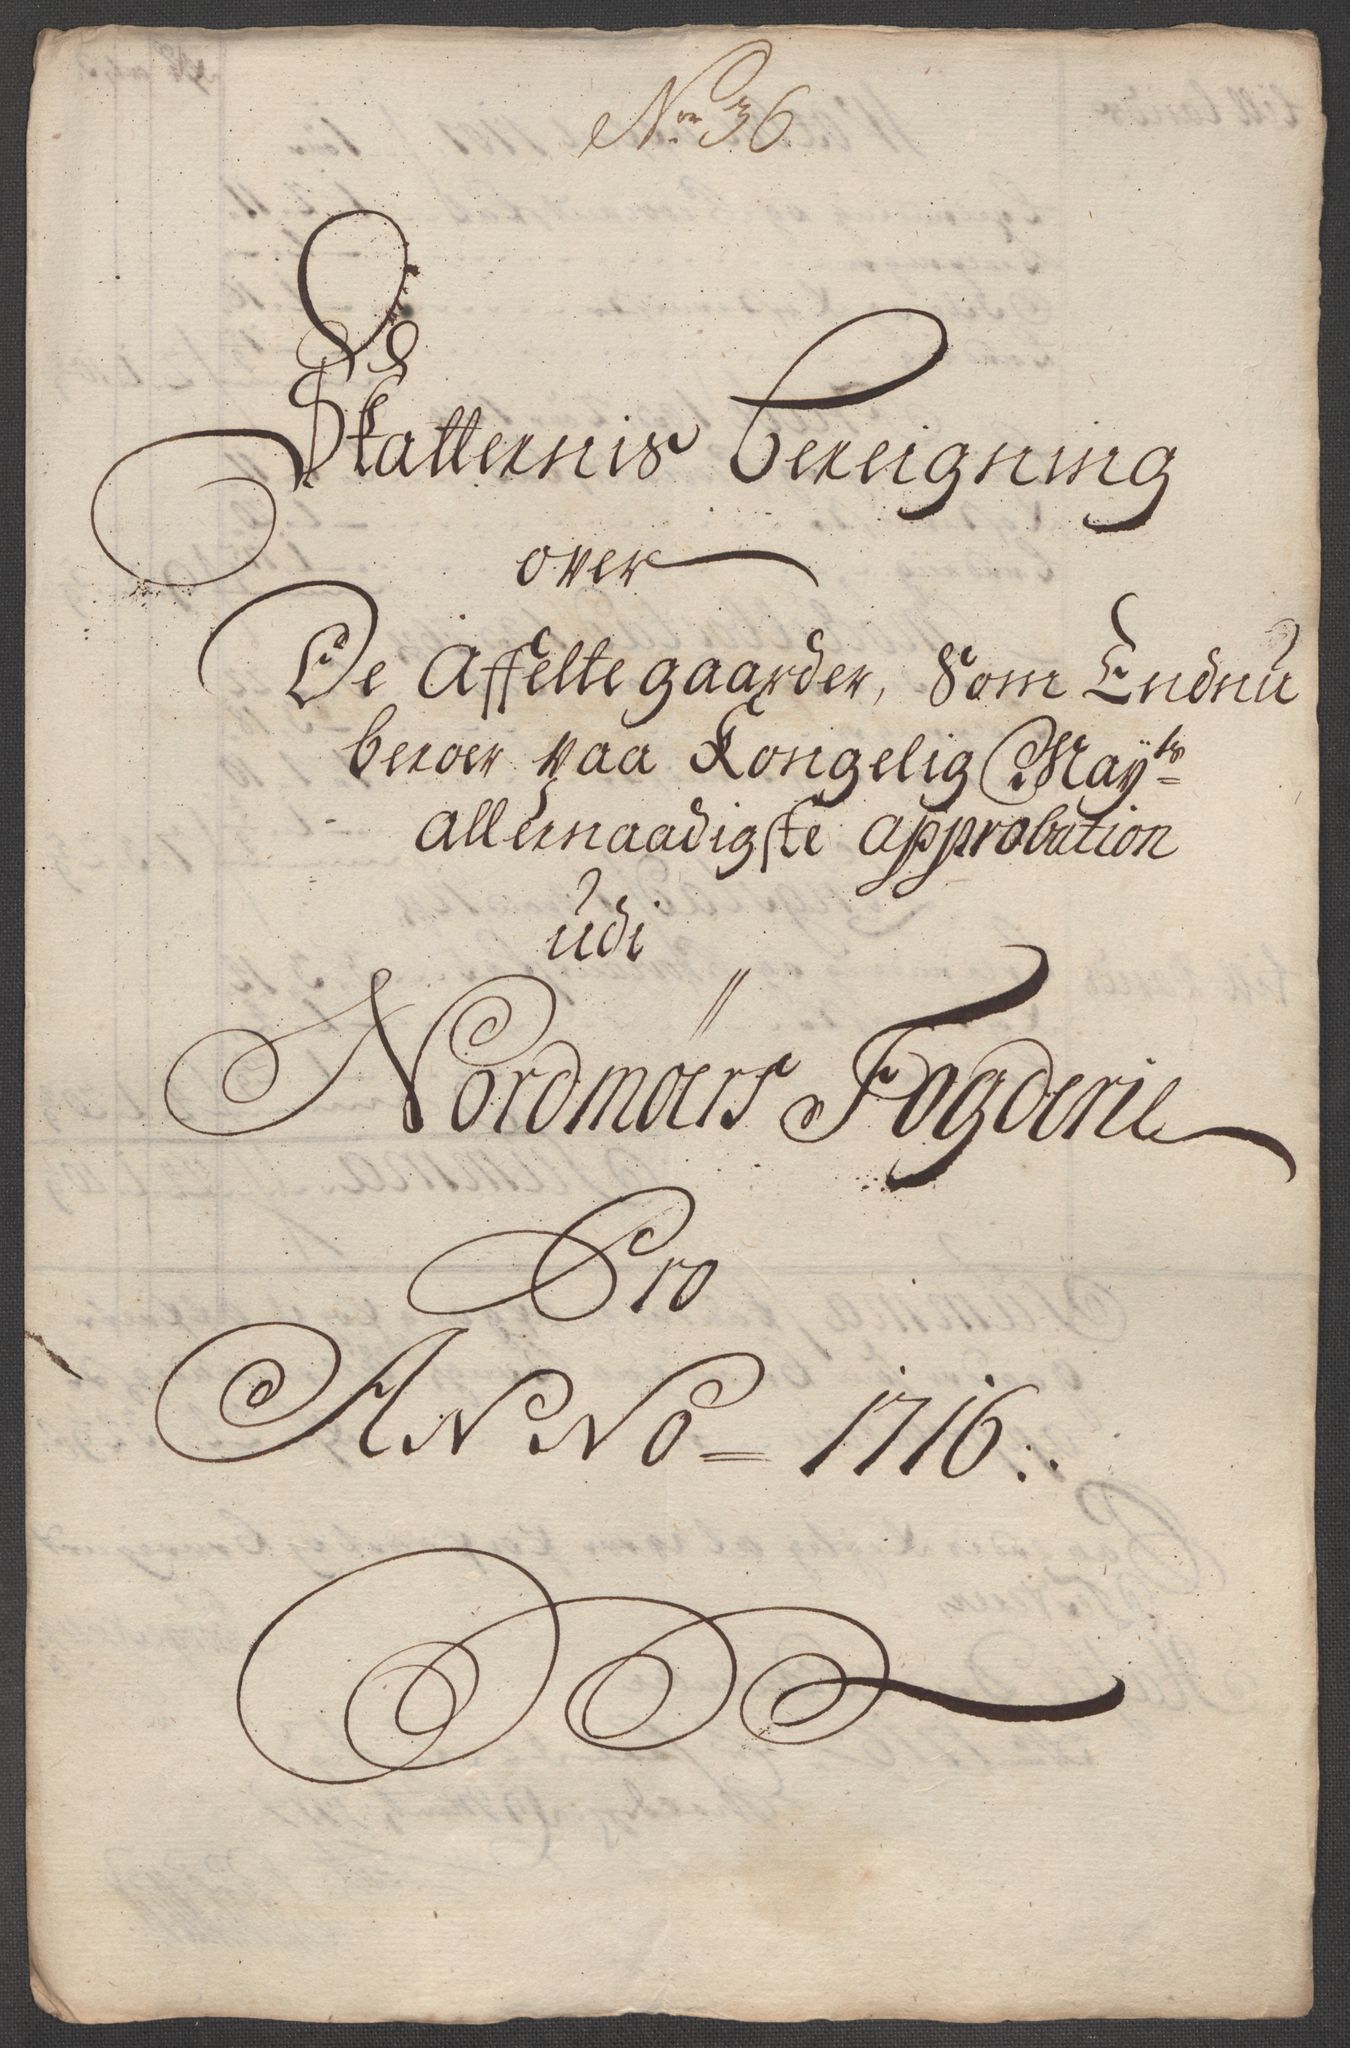 No 36
Skatternis bereigning
over
De Affelte gaarder, Som Endnu
beroer paa Kongelig Mayts
allernaadigste approbation
udi
Nordmøers Fogderie
Pro
ANNO = 1716